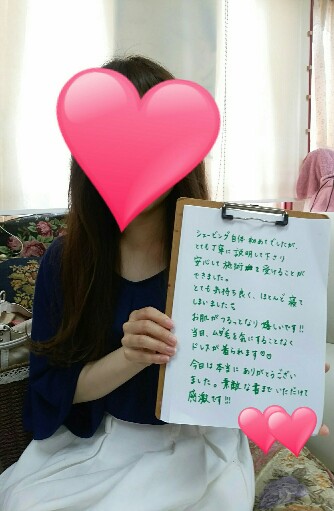 シェービング自体初めてでしたが、
とても丁寧に説明して下さり
安心して施術を受けることが
できました。
とても気持ち良く、ほとんど寝て
しまいました
お肌がつるっとなり嬉しいです!!
当日、ムダ毛を気にすることなく
ドレスが着られます♡♡
今日は本当にありがとうござい
ました。素敵な書までいただけて
感激です!!!